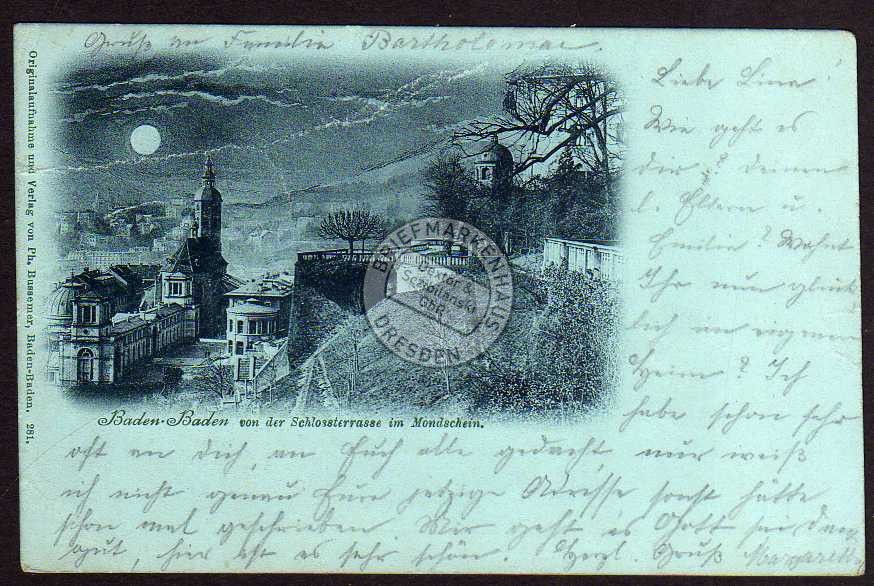 Gruß an Familie Bartholomae.
Liebe Lina!
Wie geht es
dir? deinen
l. Eltern u.
Emilie? Wohnt
Ihr nun glück
lich im eignen
Heim? Ich
habe schon sehr
oft an dich, an Euch alle gedacht, nur weiß
ich nicht genau Eure jetzige Adresse sonst hätte
schon mal geschrieben. Wir geht es Gott sei Dank
gut, hier ist es sehr schön. Herzl. Gruß Margareth
Baden-Baden von der Schlossterrasse im Mondschein.
Originalaufnahme und Verlag von Ph. Bussemer, Baden-Baden. 281.
BRIEFMARKENHAUS
DRESDEN
GbR